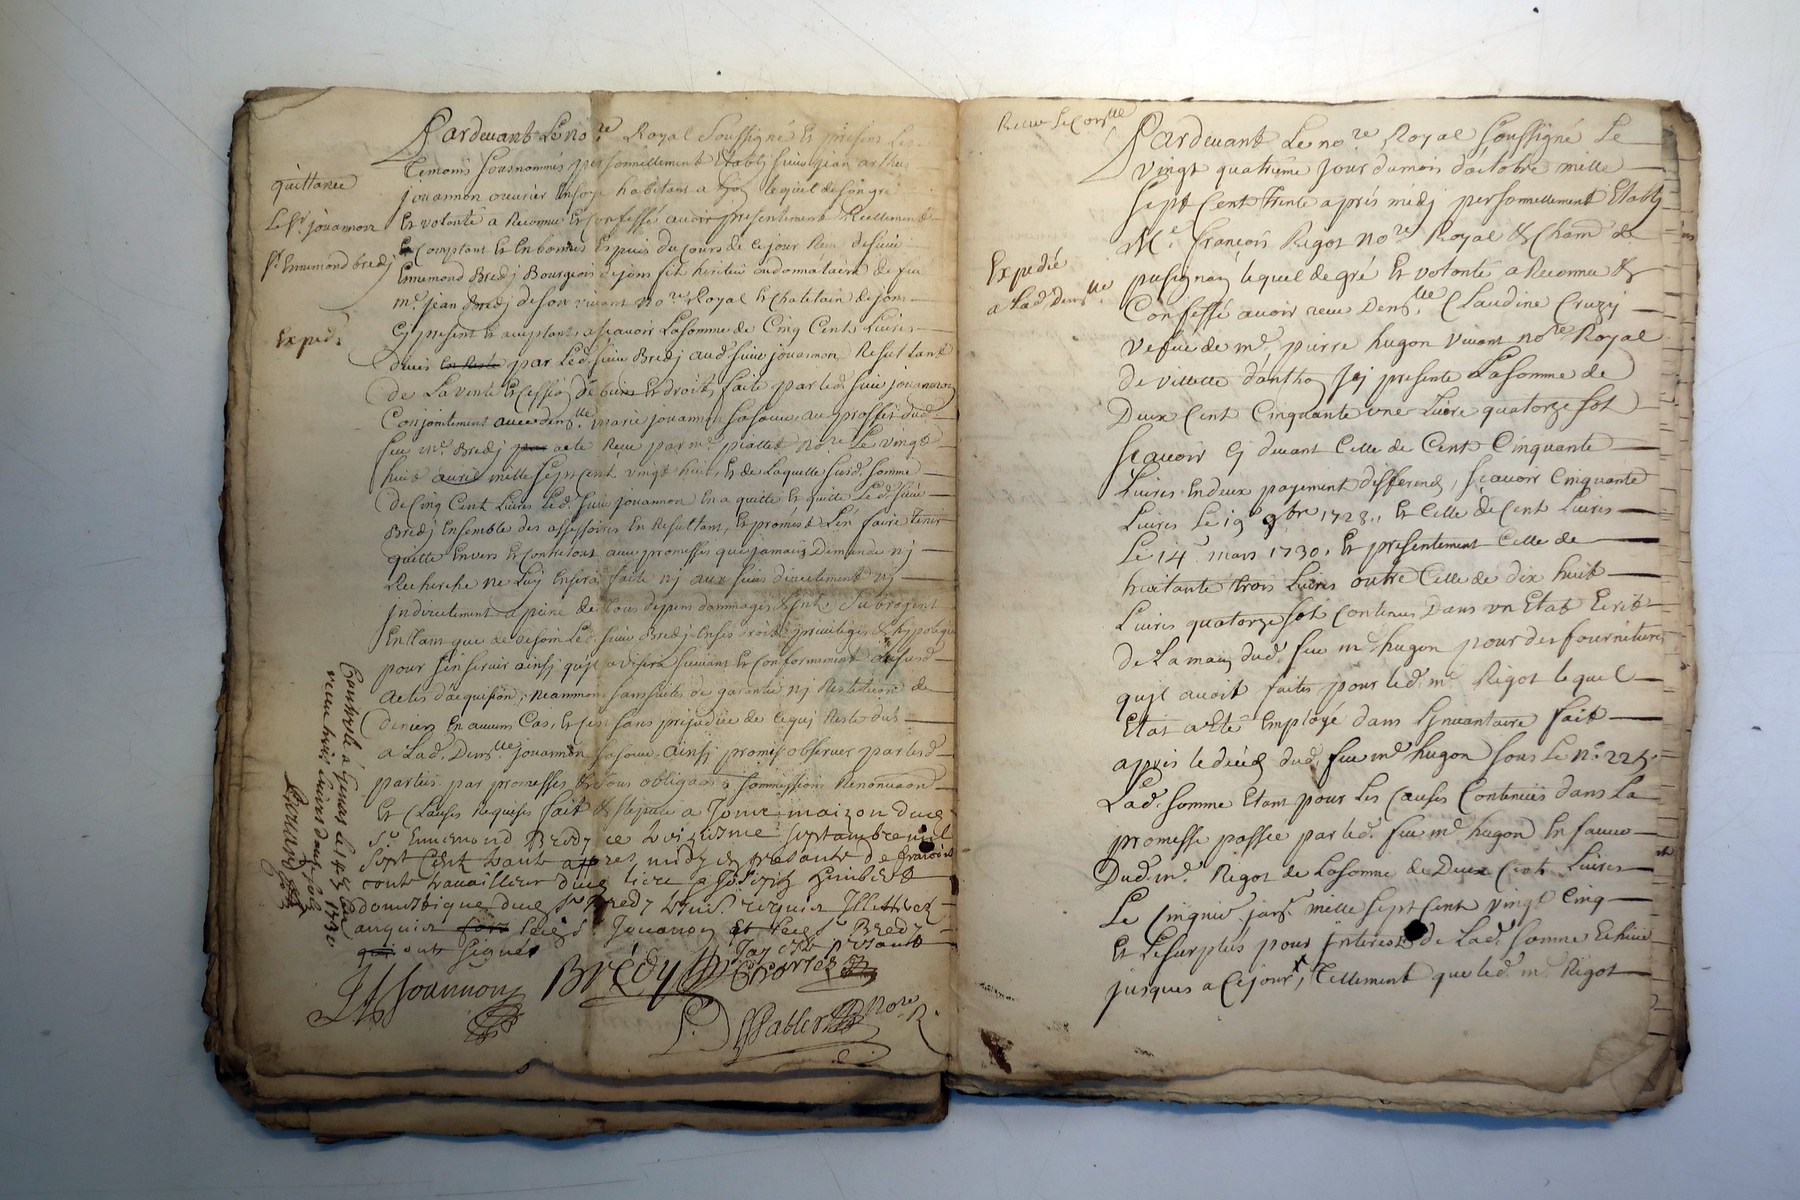 quittance
Le Sr. jouannon
Sr. Ennemond bredj
Exped.
Pardevant Le no.re Royal Soussigné Et presens Les
temoins Sousnommés personnellement Etably Sieur jean
jouannon ouvrier En soye habitant a Lyon lequel de son gré
Et volonté a Reconnu Et Confessé avoir presentement Reellement
Comptant Et En bonnes Especes du jours de ce jour Reçu de Sieur
Ennemond Bredj Bourgeois de jons fils heritier ou donnataire de feu
m.e jean Bredj de son vivant no.re Royal Et Chatelain de jons
Cy present Et acceptant, a Sçavoir La Somme de Cinq Cents Livres
deues par Led. Sieur Bredj aud. Sieur jouannon Resultant
de La vente Et Cession de biens Et droits faite par led. Sieur jouannon
Conjointement avec dem.lle marie jouannon Sa Soeur au proffit dud.
feu m.e Bredj acte Reçu par m.e piattet no.re Le vingt
huit avril mille Sept cent vingt huit Et de Laquelle Susd. Somme
de Cinq Cent Livres Led. Sieur jouannon En a quitté Et quitte Led. Sieur
Bredj Ensemble des assessoires En Resultant, Et promis L'en faire Tenir
quitte Envers Et Contre tout avec promesses que jamais Demande nj
Recherche ne Luy En sera faite nj aux Siens directement nj
jndirectement a peine de tous depens dommages & Subrogent
En tant que de besoin Led. Sieur Bredj En ses droits privileges & hypoteques
pour S'en servir ainsj qu'jl avisera Suivant Et Conformement aud. Susd.
actes d'acquision, neanmoins Sans Suites de garantie nj Restitution de
deniers En aucun Cas, Et Ce Sans prejudice de Ce quj Reste dub
a Lad. Dem.lle jouannon Sa Soeur, ainsj promis observer par lesd.
parties par promesses & Sous obligaons Soumissions Renonciaon
Et Clauses Requises fait & Recitté a Jons maizon dud.
Sr. Ennemond Bredy ce septambre mil
Sept Cent trante apres midy en presance de francois
travailleur dud. lieu
domestique dud. Sr. Bredy requis Illetheré
enquis Sr. Jouannon Bredy
ont Signés
Jouannon
Brédy
L. DesSables Nore R.
Controlé a Genas le 1730
Recu trois Livres douze Sols
Receu Le
Expedié
a Lad. Dem.lle
Pardevant Le no.re Royal Soussigné Le
vingt quatrieme jour du mois d'octobre mille
Sept Cent Trente après midj personnellement Etably
M.e françois Rigot no.re Royal & Cham. de
pusignan lequel de gré Et volonté a Reconnu &
Confessé avoir reçu Dem.lle Claudine Cruzy
vefue de m.e pierre hugon vivant no.re Royal
de villette d'anthon Jcj presente La Somme de
Deux Cent Cinquante une Livre quatorze Sol
Sçavoir Cj devant Celle de Cent Cinquante
Livres En deux payement differend, Sçavoir Cinquante
Livres Le 19 9bre 1728., Et Celle de Cent Livres
Le 14 mars 1730, Et presentement Celle de
huitante trois Livres outre Celle de dix huit
Livres quatorze Sol Contenus Dans un Etat Ecrit
de La main dud. feu m.e hugon pour des fournitures
qu'jl avoit faites pour led. m.e Rigot lequel
Etat a Eté Employé dans L'jnvantaire fait
après le décès dud. feu m.e hugon Sous Le N.o 225.
Lad. Somme Etant pour Les Causes Contenües dans La
promesse passée par led. feu m.e hugon En faveur
Dud. m.e Rigot de La Somme de Deux Cent Livres
Le Cinquie. janv. mille Sept Cent vingt Cinq
Et Le Surplus pour jnterest de Lad. Somme Echüe
jusques a Ce jour, Tellement que led. m.e Rigot